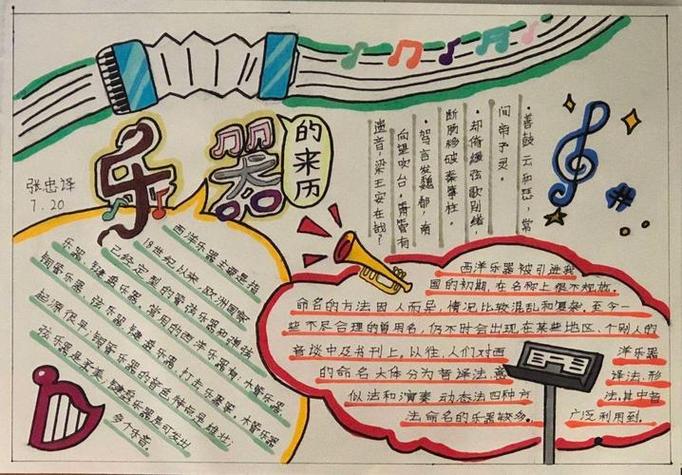 乐器
的来历
张忠译
7.20
·善鼓云和瑟,常
间帝子灵。
·却倚缓弦歌别绪,
断肠移破秦筝柱。
·驾言发魏都,南
向望吹台。箫管有
遗音,梁王安在哉?
西洋乐器主要是指
18世纪以来,欧洲国家
已经定型的管弦乐器和弹拨
乐器、键盘乐器。常用的西洋乐器有:木管乐器、
铜管乐器、弦乐器、键盘乐器、打击乐器等。木管乐器
起源很早,铜管乐器的音色特点是雄壮,
弦乐器是柔美,键盘乐器是可发出
多个乐音。
西洋乐器被引进我
国的初期,在名称上很不规范,
命名的方法因人而异,情况比较混乱和复杂。至今一
些不尽合理的曾用名,仍不时会出现在某些地区、个别人的
言谈中及书刊上。以往,人们对西洋乐器
的命名大体分为音译法、意译法、形
似法和演奏动态法四种方法,其中音
法命名的乐器较多。广泛利用到。